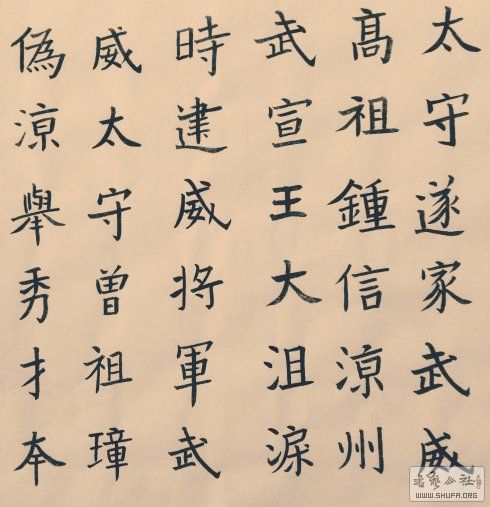 太守遂家武威
高祖鍾信凉州
武宣王大沮渠
時建威將軍武
威太守曾祖璋
偽凉舉秀才本
WWW.SHUFA.ORG